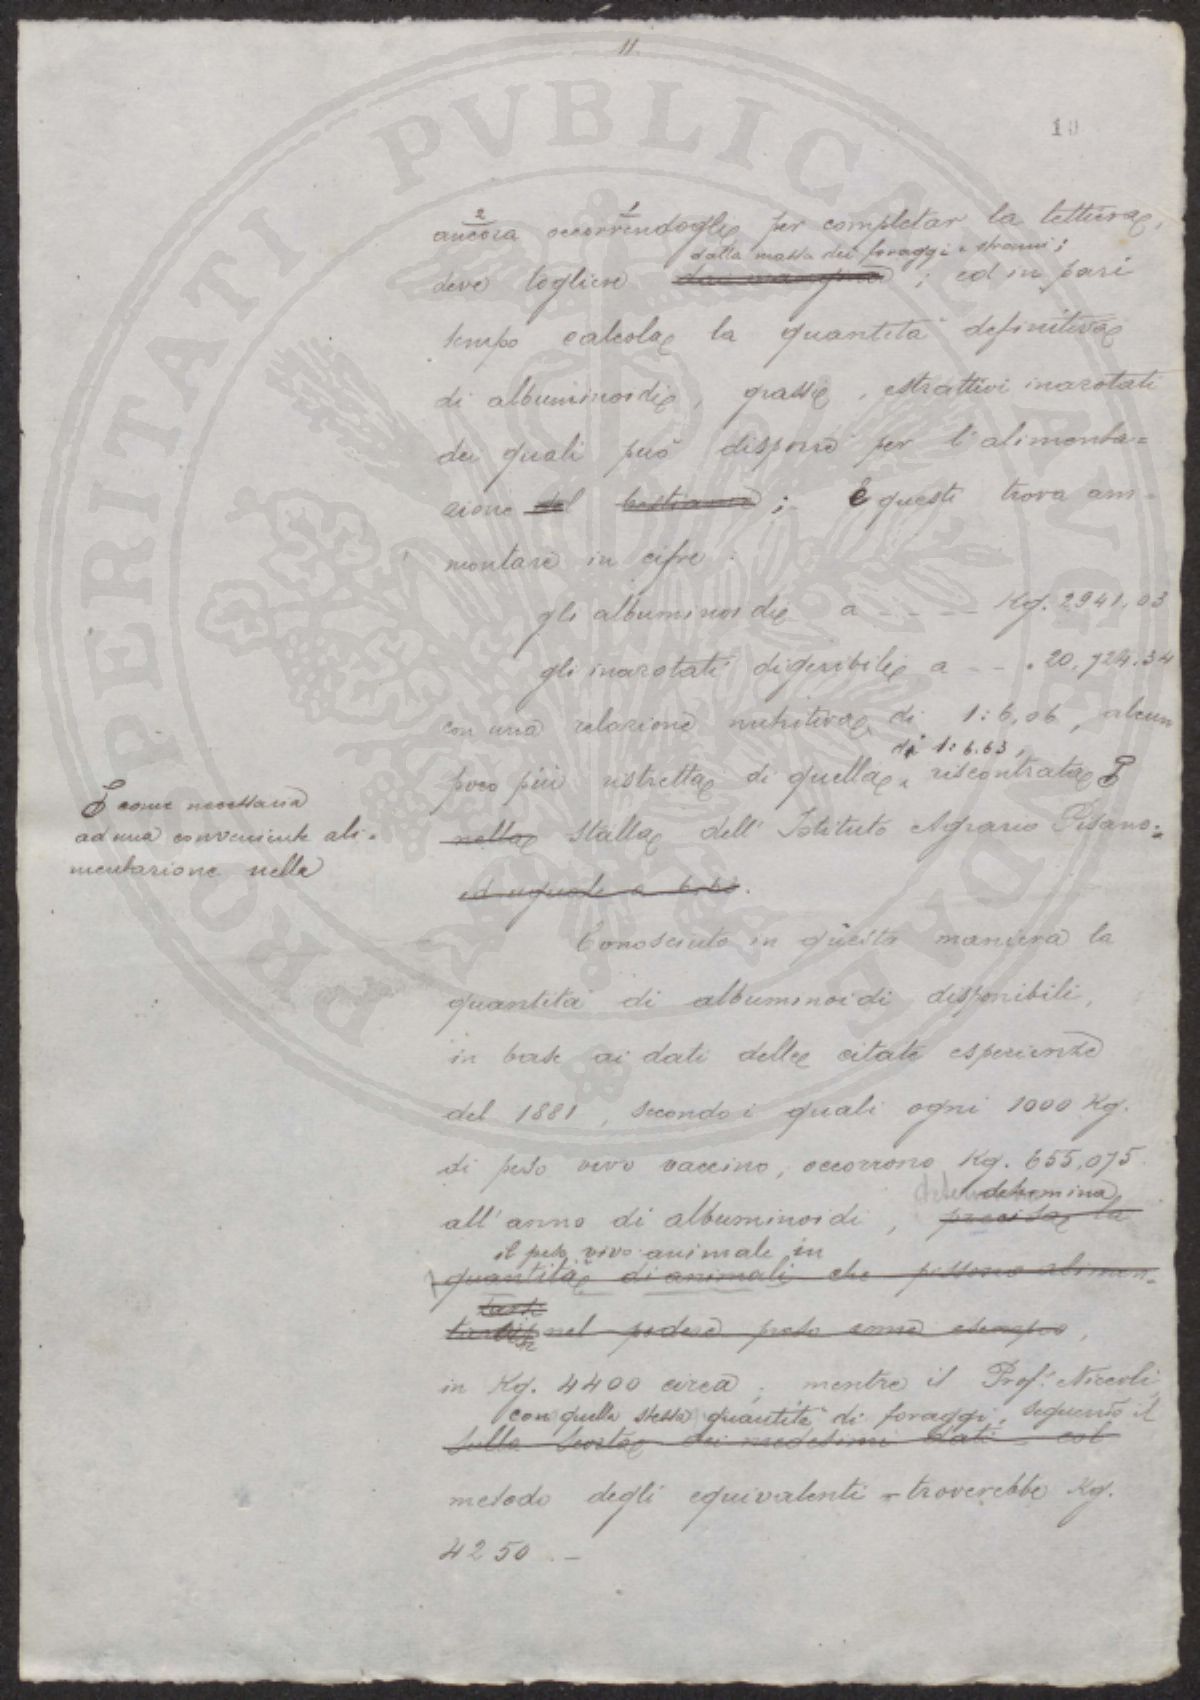 11.
10
2 1
ancora occorrendogli per completar la lettiera,
dalla massa dei foraggi e strami;
deve togliere ; ed in pari
tempo calcola la quantità definitiva
di albuminoidi, grassi, estrattivi inazotati
dei quali può disporre per l'alimenta=
zione del bestiame ; E questi trova am-
montare in cifre :
gli albuminoidi a - - - Kg. 2941,03
gli inazotati digeribili a - - . 20,724.34
con una relazione nutritiva di 1:6,06, alcun
di 1:6.63,
poco più ristretta di quella, riscontrata
come necessaria
ad una conveniente ali=
mentazione nella
nella Stalla dell'Istituto Agrario Pisano.
ed uguale a 6.63.
Conosciuto in questa maniera la
quantità di albuminoidi disponibili,
in base ai dati delle citate esperienze
del 1881, secondo i quali ogni 1000 Kg.
di peso vivo vaccino, occorrono Kg. 655,075
determina
all'anno di albuminoidi, precisa la
il peso vivo animale in
quantità di animali che possono alimen=
nel podere preso come esempio,
in Kg. 4400 circa ; mentre il Prof. Niccoli,
con quella stessa quantità di foraggi, seguendo il
sulla scorta dei medesimi dati - col
metodo degli equivalenti - troverebbe Kg.
4250. -
PROSPERITATI PVBLICAE AVGENDAE